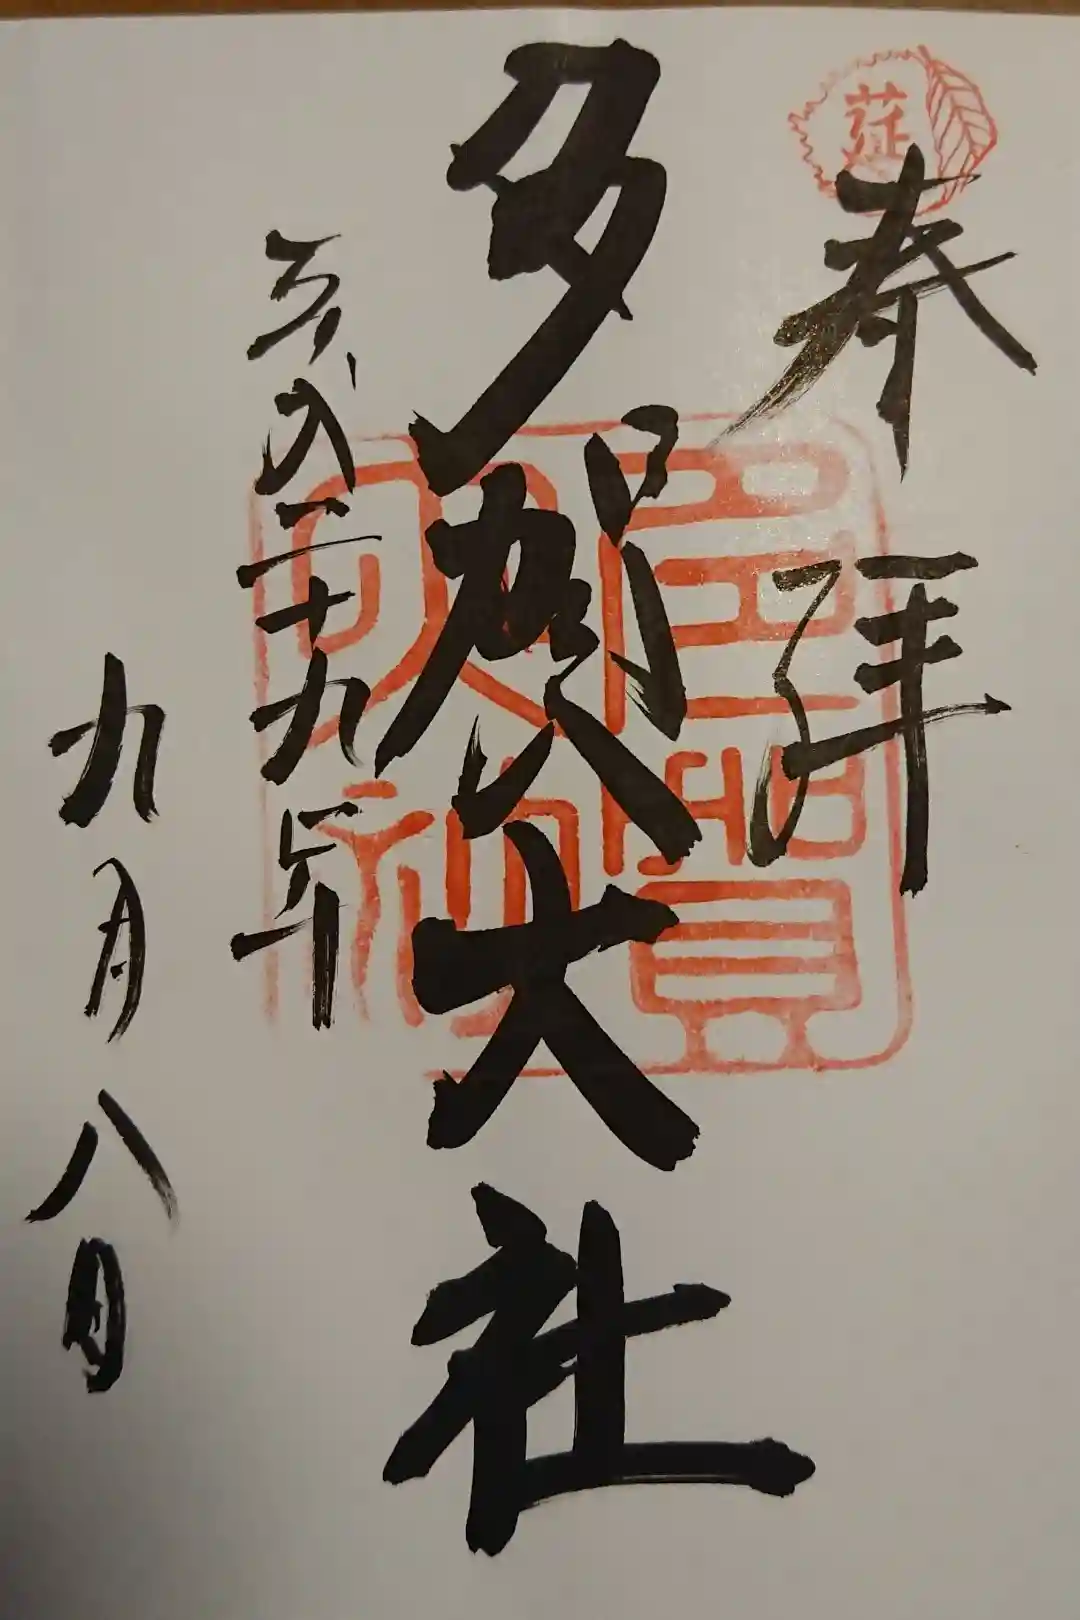 奉拝
莚
多賀大社
多賀大社
平成二十九年
九月八日